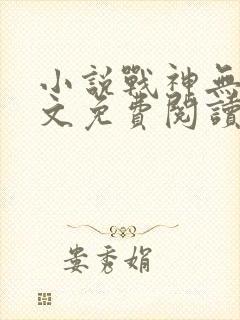 小説戰神無
文免費閱讀
娄秀娟